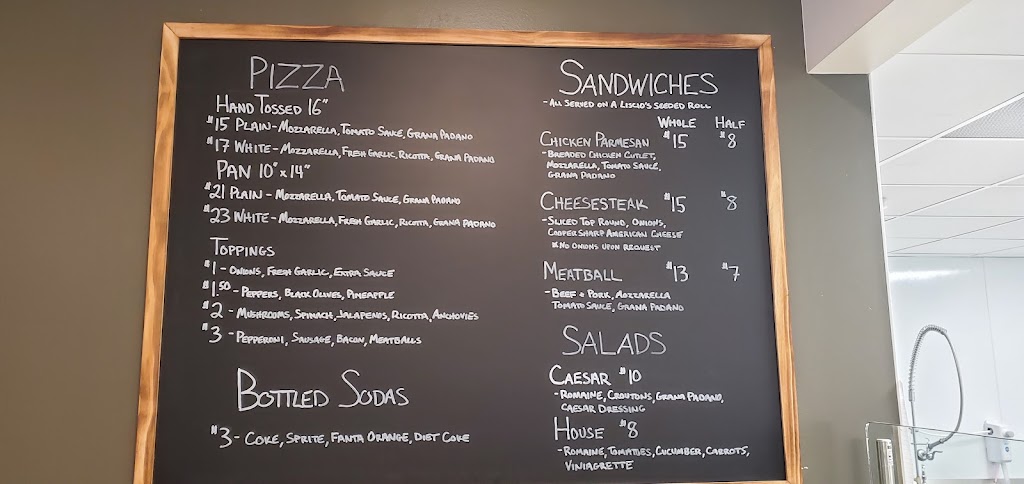 PIZZA
HAND TOSSED 16"
$15 PLAIN - MOZZARELLA, TOMATO SAUCE, GRANA PADANO
$17 WHITE - MOZZARELLA, FRESH GARLIC, RICOTTA, GRANA PADANO
PAN 10" x 14"
$21 PLAIN - MOZZARELLA, TOMATO SAUCE, GRANA PADANO
$23 WHITE - MOZZARELLA, FRESH GARLIC, RICOTTA, GRANA PADANO
TOPPINGS
$1 - ONIONS, FRESH GARLIC, EXTRA SAUCE
$1.50 - PEPPERS, BLACK OLIVES, PINEAPPLE
$2 - MUSHROOMS, SPINACH, JALAPENOS, RICOTTA, ANCHOVIES
$3 - PEPPERONI, SAUSAGE, BACON, MEATBALLS
BOTTLED SODAS
$3 - COKE, SPRITE, FANTA ORANGE, DIET COKE
SANDWICHES
- ALL SERVED ON A LISCIO'S SEEDED ROLL
WHOLE HALF
CHICKEN PARMESAN $15 $8
- BREADED CHICKEN CUTLET,
MOZZARELLA, TOMATO SAUCE,
GRANA PADANO
CHEESESTEAK $15 $8
- SLICED TOP ROUND, ONIONS,
COOPER SHARP AMERICAN CHEESE
*NO ONIONS UPON REQUEST
MEATBALL $13 $7
- BEEF + PORK, MOZZARELLA
TOMATO SAUCE, GRANA PADANO
SALADS
CAESAR $10
- ROMAINE, CROUTONS, GRANA PADANO,
CAESAR DRESSING
HOUSE $8
- ROMAINE, TOMATOES, CUCUMBER, CARROTS,
VINIAGRETTE